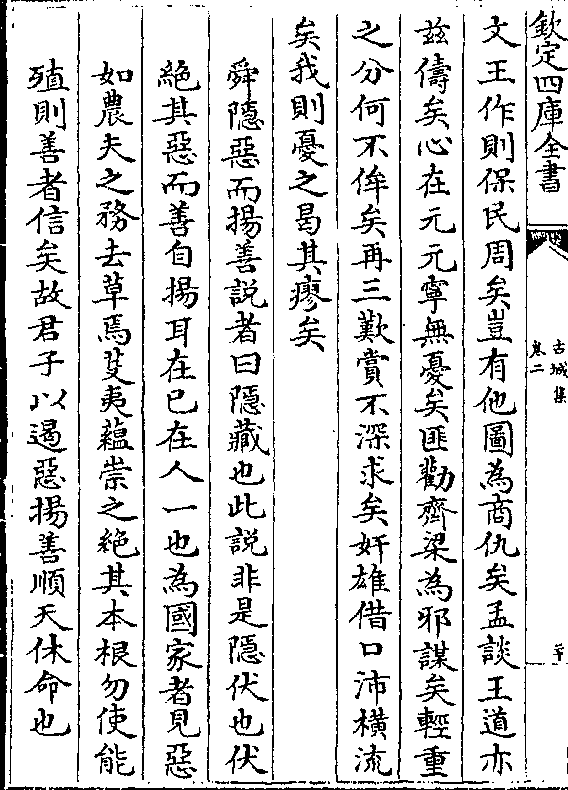 欽定四庫全書
古城集
卷二
文王作則保民周矣豈有他圖為商仇矣孟談王道亦
兹儔矣心在元元寧無憂矣匪勸齊梁為邪謀矣輕重
之分何不侔矣再三歎賞不深求矣奸雄借口沛橫流
矣我則憂之曷其瘳矣
舜隱惡而揚善説者曰隱藏也此説非是隱伏也伏
絶其惡而善自揚耳在已在人一也為國家者見惡
如農夫之務去草焉芟夷藴崇之絶其本根勿使能
殖則善者信矣故君子以遏惡揚善順天休命也